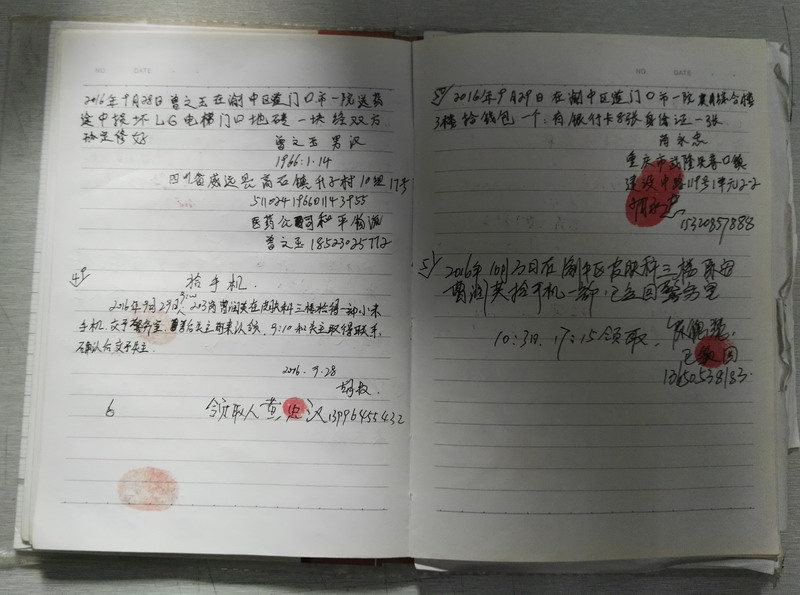 NO. DATE
2016年9月28日曾文玉在渝中区道门口市一院送药
途中损坏LG电梯门口地砖一块经双方
修好
曾文玉 男 汉
1966.1.14
四川省威远县高石镇 村10组17号
511024196601143955
医药 和平物流
曾文玉 18523025772
4# 拾手机
9:00
2016年9月29日,203房曹润英在皮肤科三楼拾得一部小米
手机,交于警务室. 后失主前来认领, 9:10和失主取得联系,
确认后交于失主.
2016.9.28
6 领取人黄 汉13996455432
NO. DATE
5/ 2016年9月29日在渝中区道门口市一院 综合楼
3楼拾钱包一个:有银行卡8张身份证一张
肖永忠
重庆市武隆 口镇
建设中路119号1单元2-2
15320857888
5/ 2016年10月 日在渝中区皮肤科三楼
曹润英拾手机一部,已 回警务室
10:3日.17:15领取.
已领回
13650538183.